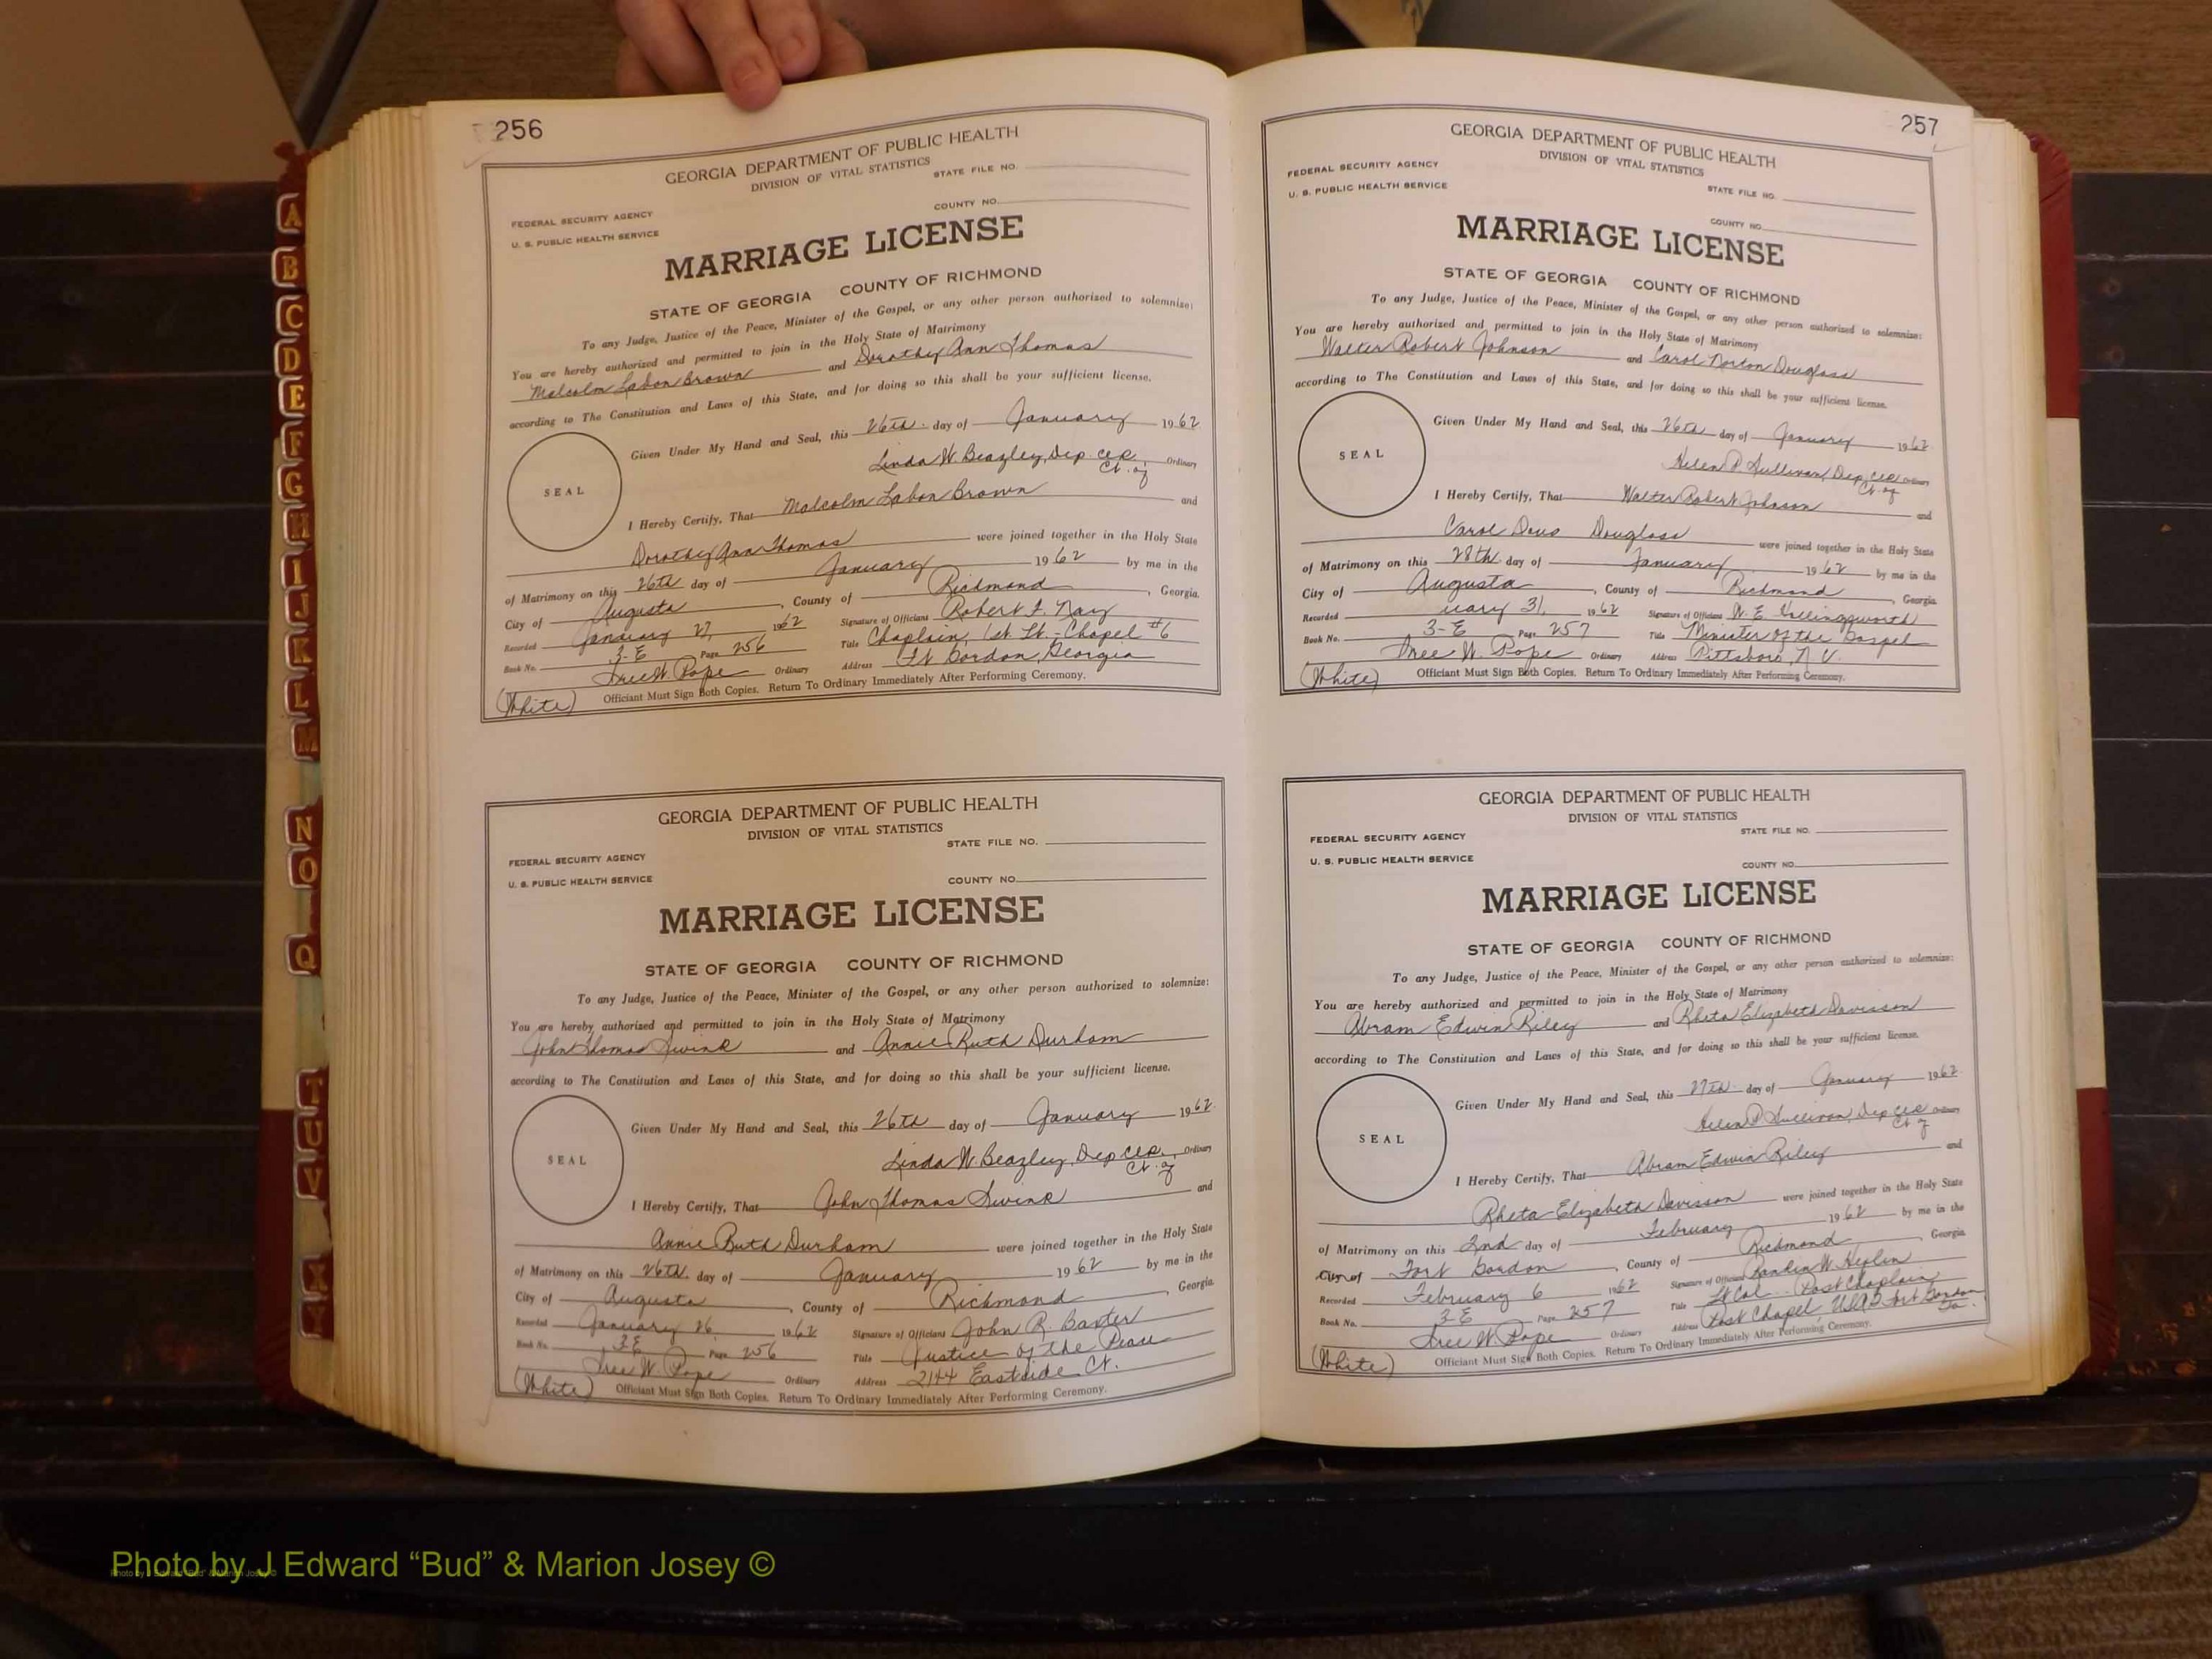 256
GEORGIA DEPARTMENT OF PUBLIC HEALTH
DIVISION OF VITAL STATISTICS
STATE FILE NO.
FEDERAL SECURITY AGENCY
COUNTY NO.
U. S. PUBLIC HEALTH SERVICE
MARRIAGE LICENSE
STATE OF GEORGIA COUNTY OF RICHMOND
To any Judge, Justice of the Peace, Minister of the Gospel, or any other person authorized to solemnize:
You are hereby authorized and permitted to join in the Holy State of Matrimony
Malcolm Labon Brown and Dorothy Ann Thomas
according to The Constitution and Laws of this State, and for doing so this shall be your sufficient license.
Given Under My Hand and Seal, this 26th day of January 1962
Linda W. Beazley, Dep. Clk. Ordinary
Ct. of
SEAL
I Hereby Certify, That Malcolm Labon Brown and
Dorothy Ann Thomas were joined together in the Holy State
of Matrimony on this 26th day of January 1962 by me in the
City of Augusta, County of Richmond, Georgia.
Recorded January 27, 1962 Signature of Officiant Robert F. Nay
Book No. 3-E Page 256 Title Chaplain, 1st Lt. - Chapel #6
W. Pope Ordinary Address Ft Gordon, Georgia
(White) Officiant Must Sign Both Copies. Return To Ordinary Immediately After Performing Ceremony.
GEORGIA DEPARTMENT OF PUBLIC HEALTH
DIVISION OF VITAL STATISTICS
STATE FILE NO.
FEDERAL SECURITY AGENCY
U. S. PUBLIC HEALTH SERVICE
COUNTY NO.
MARRIAGE LICENSE
STATE OF GEORGIA COUNTY OF RICHMOND
To any Judge, Justice of the Peace, Minister of the Gospel, or any other person authorized to solemnize:
You are hereby authorized and permitted to join in the Holy State of Matrimony
John Thomas Swink and Annie Ruth Durham
according to The Constitution and Laws of this State, and for doing so this shall be your sufficient license.
Given Under My Hand and Seal, this 26th day of January 1962
Linda W. Beazley, Dep Clk. Ordinary
Ct. of
SEAL
I Hereby Certify, That John Thomas Swink and
Annie Ruth Durham were joined together in the Holy State
of Matrimony on this 26th day of January 1962 by me in the
City of Augusta, County of Richmond, Georgia
Recorded January 26, 1962 Signature of Officiant John R. Baxter
Book No. 3E Page 256 Title Justice of the Peace
W. Pope Ordinary Address 2144 Eastside Ct.
(White) Officiant Must Sign Both Copies. Return To Ordinary Immediately After Performing Ceremony.
257
GEORGIA DEPARTMENT OF PUBLIC HEALTH
DIVISION OF VITAL STATISTICS
FEDERAL SECURITY AGENCY
U. S. PUBLIC HEALTH SERVICE
STATE FILE NO.
COUNTY NO.
MARRIAGE LICENSE
STATE OF GEORGIA COUNTY OF RICHMOND
To any Judge, Justice of the Peace, Minister of the Gospel, or any other person authorized to solemnize:
You are hereby authorized and permitted to join in the Holy State of Matrimony
Walter Robert Johnson and Carol Norton Douglass
according to The Constitution and Laws of this State, and for doing so this shall be your sufficient license.
Given Under My Hand and Seal, this 26th day of January 1962
Helen P. Sullivan, Dep. Clk. Ordinary
Ct. of
SEAL
I Hereby Certify, That Walter Robert Johnson and
Carol Douglass were joined together in the Holy State
of Matrimony on this 28th day of January 1962 by me in the
City of Augusta, County of Richmond, Georgia.
Recorded uary 31, 1962 Signature of Officiant W. E.
Book No. 3-E Page 257 Title Minister of the Gospel
W. Pope Ordinary Address Pittsboro, N. C.
(White) Officiant Must Sign Both Copies. Return To Ordinary Immediately After Performing Ceremony.
GEORGIA DEPARTMENT OF PUBLIC HEALTH
DIVISION OF VITAL STATISTICS
STATE FILE NO.
FEDERAL SECURITY AGENCY
U. S. PUBLIC HEALTH SERVICE
COUNTY NO.
MARRIAGE LICENSE
STATE OF GEORGIA COUNTY OF RICHMOND
To any Judge, Justice of the Peace, Minister of the Gospel, or any other person authorized to solemnize:
You are hereby authorized and permitted to join in the Holy State of Matrimony
Abram Edwin Riley and Rheta Elizabeth Davisson
according to The Constitution and Laws of this State, and for doing so this shall be your sufficient license.
Given Under My Hand and Seal, this 27th day of January 1962
Helen P. Sullivan, Dep Clk Ordinary
Ct. of
SEAL
I Hereby Certify, That Abram Edwin Riley and
Rheta Elizabeth Davisson were joined together in the Holy State
of Matrimony on this 2nd day of February 1962 by me in the
City of Fort Gordon, County of Richmond, Georgia
Recorded February 6 1962 Signature of Officiant W. Heflin
Book No. 3E Page 257 Title Lt Col. Post Chaplain
W. Pope Ordinary Address Post Chapel, Fort Gordon
Ga.
(White) Officiant Must Sign Both Copies. Return To Ordinary Immediately After Performing Ceremony.
A
B
C
D
E
F
G
H
I
J
K
L
M
N
O
Q
T
U
V
X
Y
Photo by J Edward “Bud” & Marion Josey ©
Photo by J Edward “Bud” & Marion Josey ©